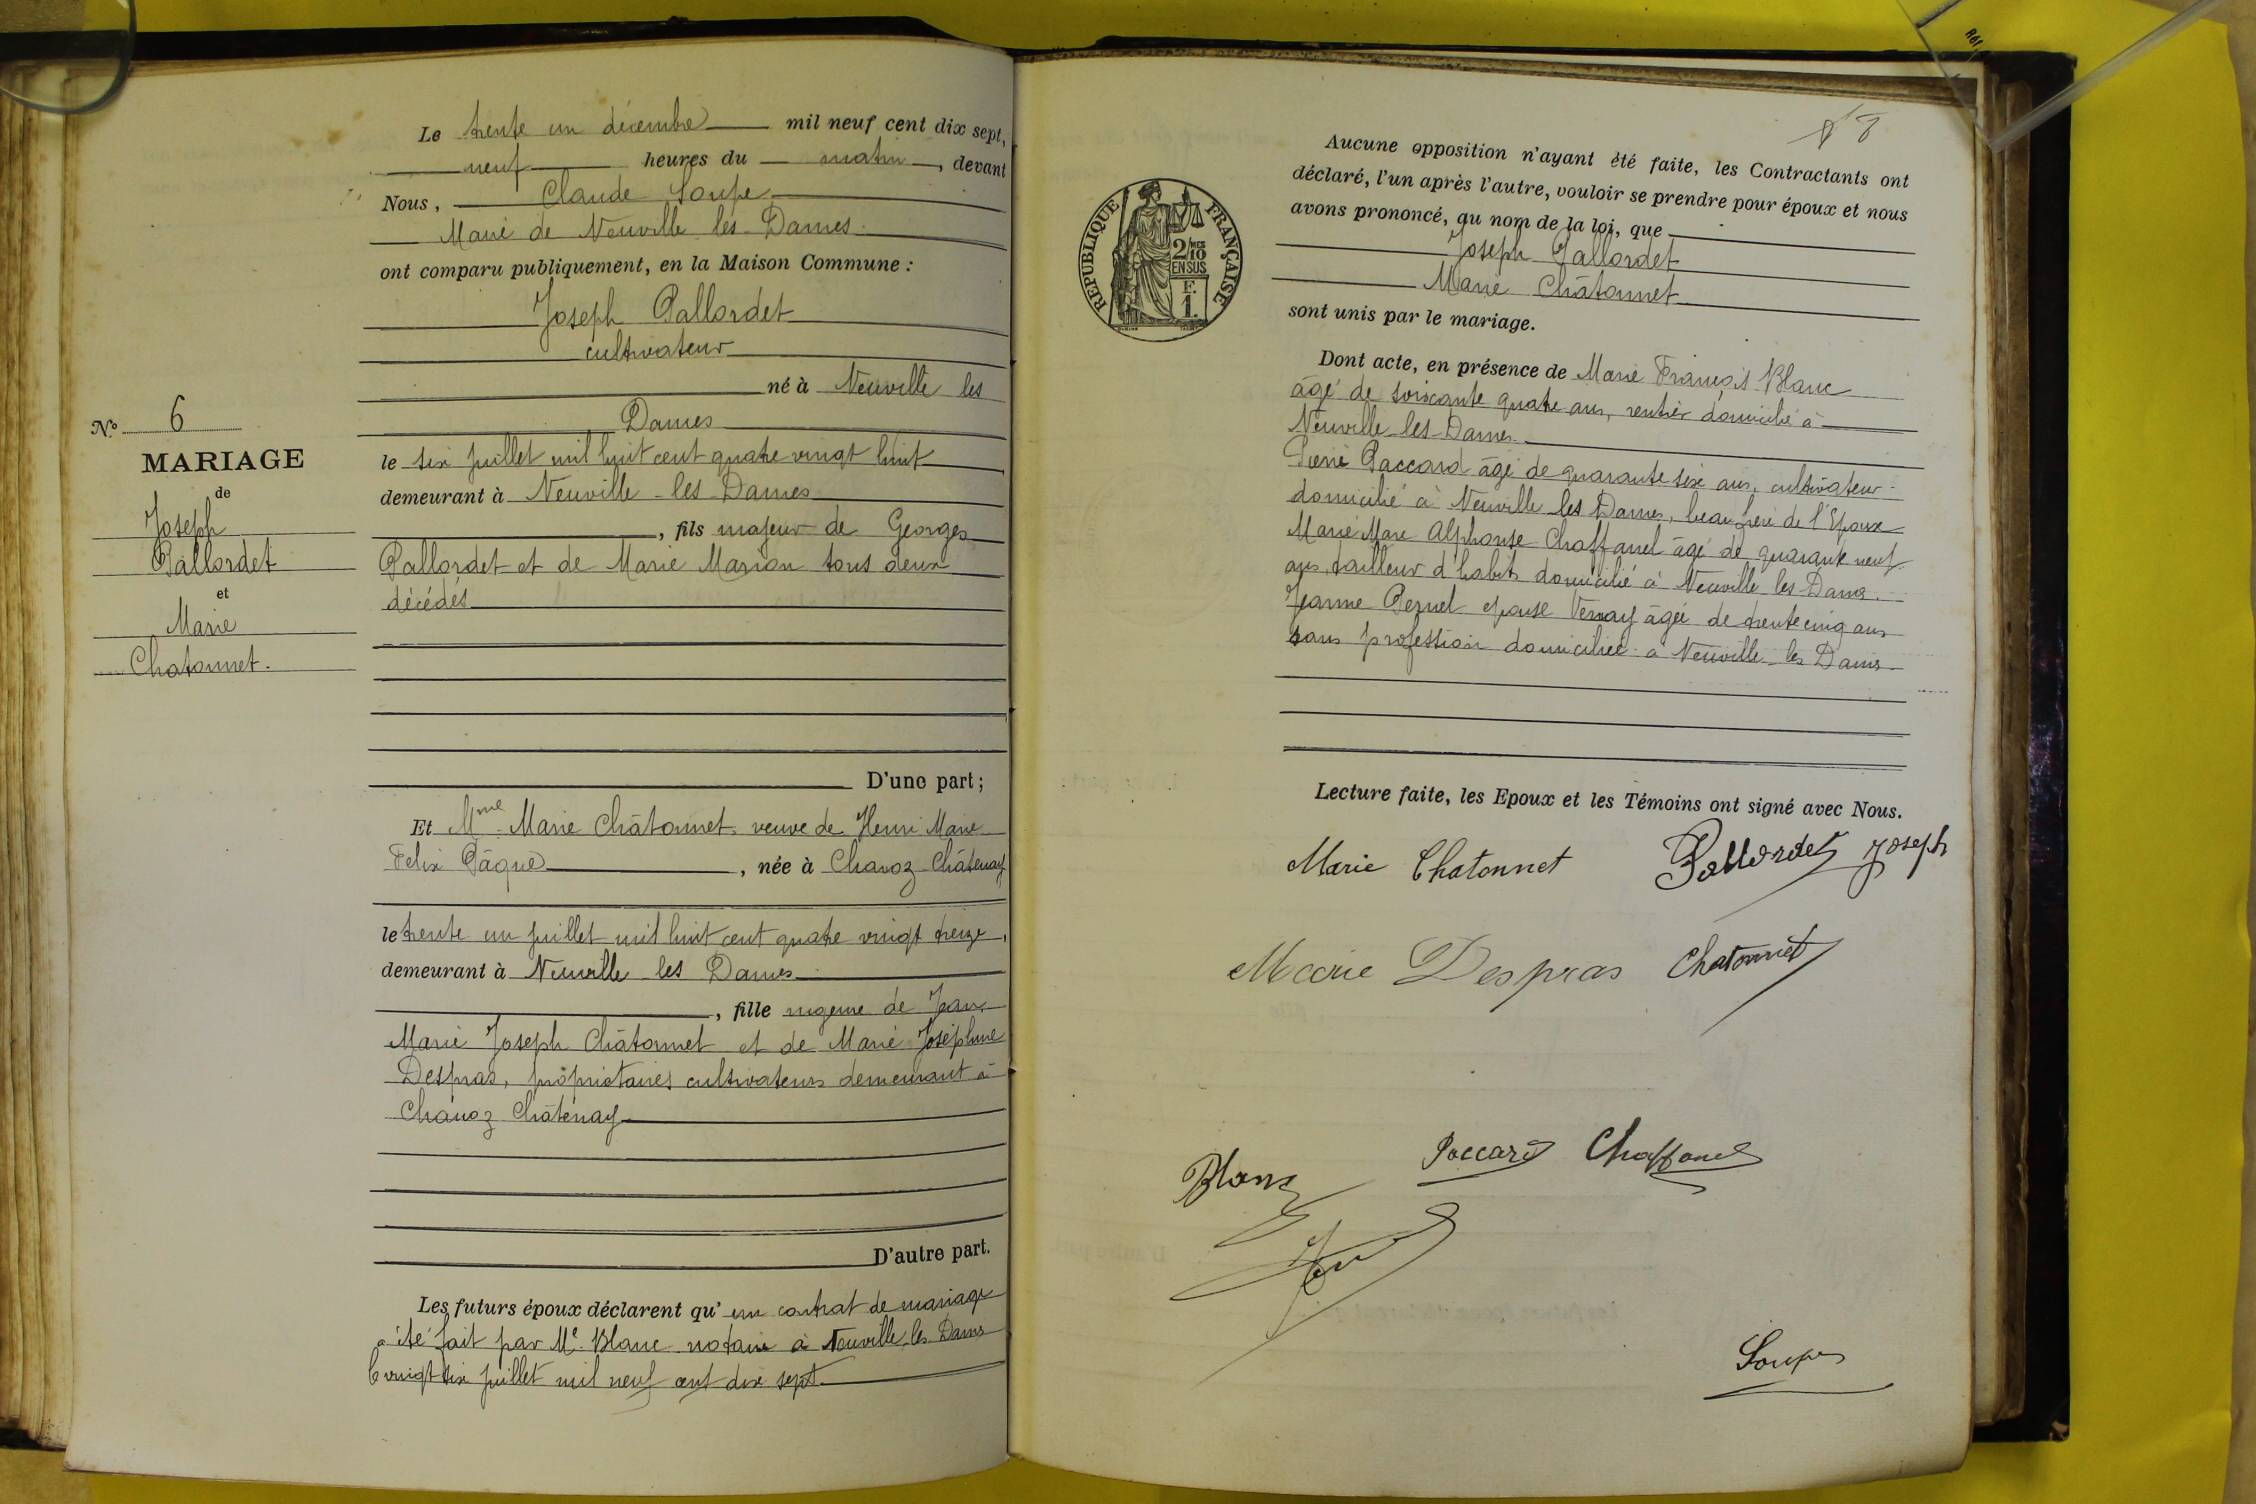 N° 6
MARIAGE
de
Joseph
Pallordet
et
Marie
Chatonnet.
Le trente un décembre mil neuf cent dix sept,
neuf heures du matin, devant
Nous, Claude Soupe
Maire de Neuville les Dames
ont comparu publiquement, en la Maison Commune :
Joseph Pallordet
cultivateur
né à Neuville les
Dames
le six juillet mil huit cent quatre vingt huit
demeurant à Neuville-les-Dames
, fils majeur de Georges
Pallordet et de Marie Marion tous deux
décédés
D'une part ;
Et Mme Marie Châtonnet veuve de Henri Marie
Felix Pâque, née à Chanoz-Châtenay
le trente un juillet mil huit cent quatre vingt treize,
demeurant à Neuville les Dames
, fille majeure de Jean
Marie Joseph Châtonnet et de Marie Joséphine
Despras, propriétaires cultivateurs demeurant à
Chanoz Châtenay
D'autre part.
Les futurs époux déclarent qu'un contrat de mariage
a été fait par Me Blanc notaire à Neuville les Dames
le vingt six juillet mil neuf cent dix sept
8
RÉPUBLIQUE FRANÇAISE
2/10 MES
EN SUS
F.
1.
Aucune opposition n'ayant été faite, les Contractants ont
déclaré, l'un après l'autre, vouloir se prendre pour époux et nous
avons prononcé, au nom de la loi, que
Joseph Pallordet
Marie Châtonnet
sont unis par le mariage.
Dont acte, en présence de Marie François Blanc
âgé de soixante quatre ans, rentier domicilié à
Neuville-les-Dames
Pierre Paccard âgé de quarante six ans, cultivateur
domicilié à Neuville les Dames, beau frère de l'Epoux
Marie Marc Alphonse Chaffanel âgé de quarante neuf
ans, tailleur d'habits domicilié à Neuville les Dames.
Jeanne Pernel épouse Vernay âgée de trente cinq ans
sans profession domiciliée à Neuville les Dames
Lecture faite, les Epoux et les Témoins ont signé avec Nous.
Marie Chatonnet Pallordet Joseph
Marie Despras Chatonnet
Blanc Paccard Chaffanel
Soupe